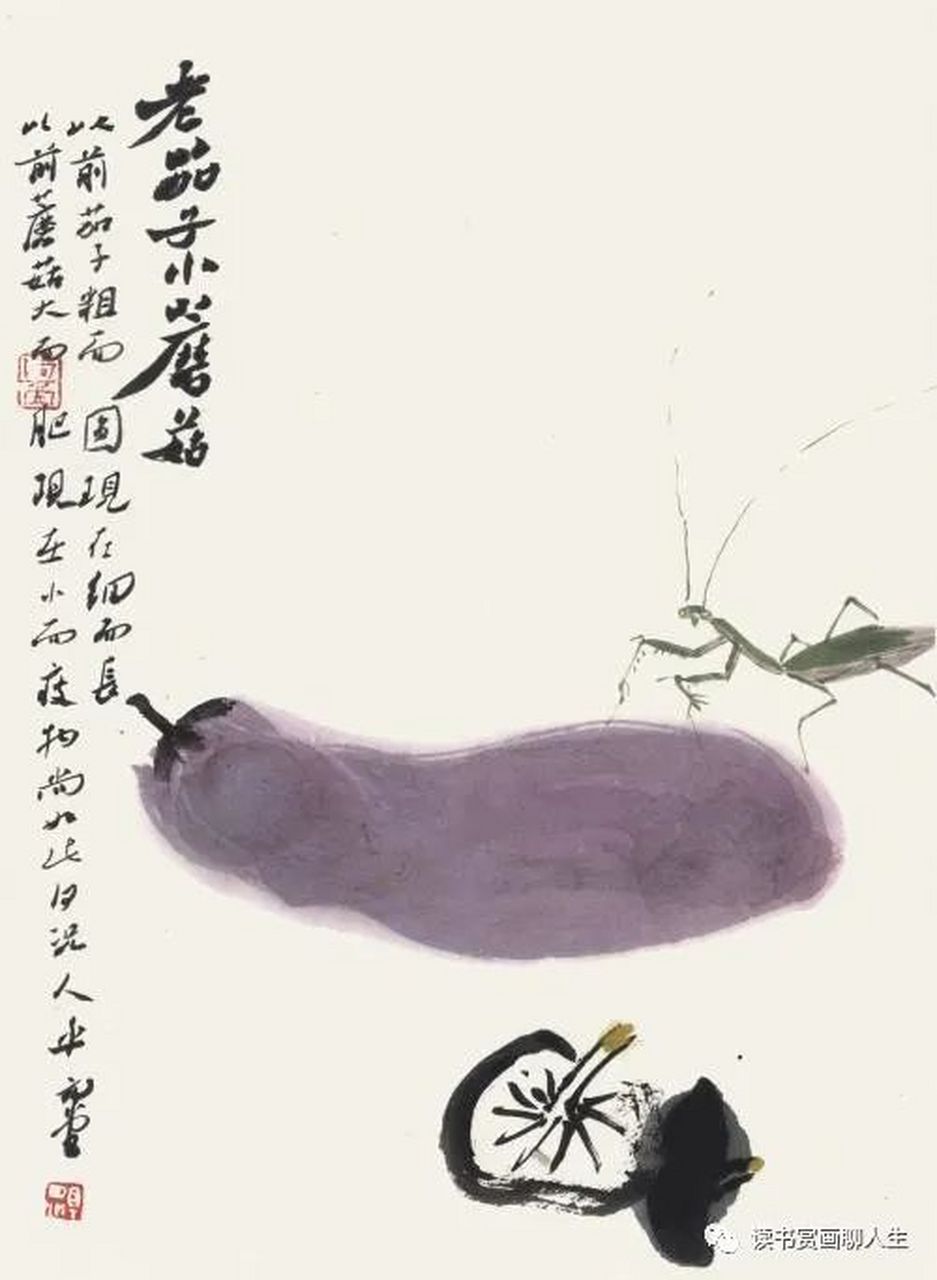 老茄子小蘑菇
以前茄子粗而圓現在細而長
以前蘑菇大而肥現在小而瘦物尚如此何況人乎
读书赏画聊人生